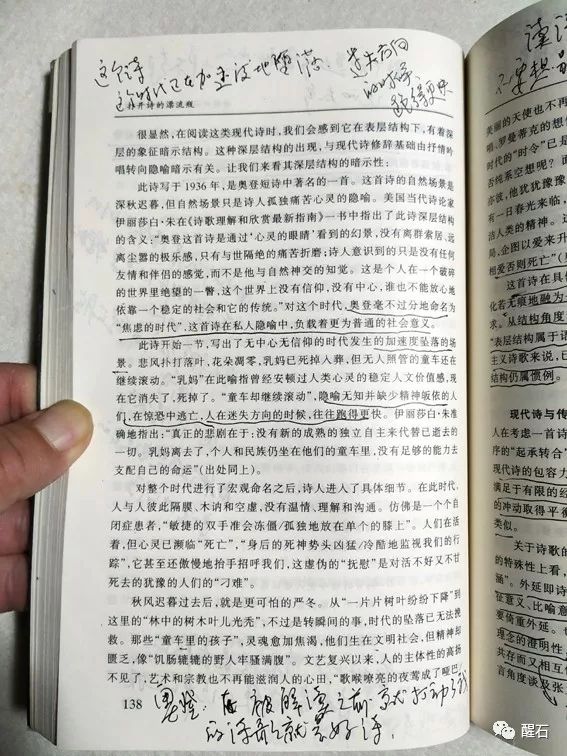 这个诗
这个时代正在加速度地堕落 迷失方向
的时候
跑得更快
打开诗的漂流瓶
很显然,在阅读这类现代诗时,我们会感到它在表层结构下,有着深
层的象征暗示结构。这种深层结构的出现,与现代诗修辞基础由抒情吟
唱转向隐喻暗示有关。让我们来看其深层结构的暗示性:
此诗写于1936年,是奥登短诗中著名的一首。这首诗的自然场景是
深秋迟暮,但自然场景只是诗人孤独痛苦心灵的隐喻。美国当代诗论家
伊丽莎白·朱在《诗歌理解和欣赏最新指南》一书中指出了此诗深层结构
的含义:“奥登这首诗是通过‘心灵的眼睛’看到的幻景,没有离群索居、远
离尘嚣的极乐感,只有与世隔绝的痛苦折磨;诗人意识到的只是没有任何
友情和伴侣的感觉,而不是他与自然神交的知觉。这是个人在一个破碎
的世界里绝望的一瞥,这个世界上没有信仰,没有中心,谁也不能放心地
依靠一个稳定的社会和它的传统。”对这个时代,奥登毫不过分地命名为
“焦虑的时代”,这首诗在私人隐喻中,负载着更为普通的社会意义。
此诗开始一节,写出了无中心无信仰的时代发生的加速度坠落的场
景。悲风扑打落叶,花朵凋零,乳妈已死掉入葬,但无人照管的童车还在
继续滚动。“乳妈”在此喻指曾经安顿过人类心灵的稳定人文价值感,现
在它消失了,死掉了。“童车却继续滚动”,隐喻无知并缺少精神皈依的人
们,在惊恐中逃亡,人在迷失方向的时候,往往跑得更快。伊丽莎白·朱准
确地指出:“真正的悲剧在于:没有新的成熟的独立自主来代替已逝去的
一切。乳妈离去了,个人和民族仍坐在他们的童车里,没有足够的能力去
支配自己的命运”(出处同上)。
对整个时代进行了宏观命名之后,诗人进入了具体细节。在此时代,
人与人彼此隔膜、木讷和空虚,没有温情、理解和沟通。仿佛是一个个自
闭症患者,“敏捷的双手准会冻僵/孤独地放在单个的膝上”。人们在活
着,但心灵已濒临“死亡”,“身后的死神势头凶猛/冷酷地监视我们的行
踪”,它甚至还傲慢地抬手招呼我们,这虚伪的“抚慰”是对活不好又不甘
死去的犹豫的人们的“刁难”。
秋风迟暮过去后,就是更可怕的严冬。从“一片片树叶纷纷下降”到
这里的“林中的树木叶儿光秃”,不过是转瞬间的事,时代的坠落已无法挽
救。那些“童车里的孩子”,灵魂愈加焦渴,他们生在文明社会,但精神却
匮乏,像“饥肠辘辘的野人牢骚满腹”。文艺复兴以来,人的主体性的高扬
不见了,艺术和宗教也不再能滋润人的心田,“歌喉嘹亮的夜莺成了哑巴,
138
奥登:在被解读之前就打动了我
的诗歌就是好诗。
读诗
不要想
美丽的天使也不再
唱、罗曼蒂克的想
时代的“时令”已是
否纯系空想呢?
亦彼,他犹犹豫豫
有一日春光来临,
洁人类的精神。这
局,企图以爱来升
相爱否则死亡”(
这首诗在具体
化若无痕地融为一
求。从结构角度
“表层结构属于语
主义诗歌来说,已
结构仍属惯例。
现代诗与传
人在考虑一首诗
序的“起承转合”
现代诗的包容力
满足于有限的经
的冲动取得平衡
类似。
关于诗歌的
的特殊性上看,
涵”。外延即诗
征意义、比喻意
要倚重外延。也
理念的澄明性,
共存而又相互
言角度谈及张
醒石